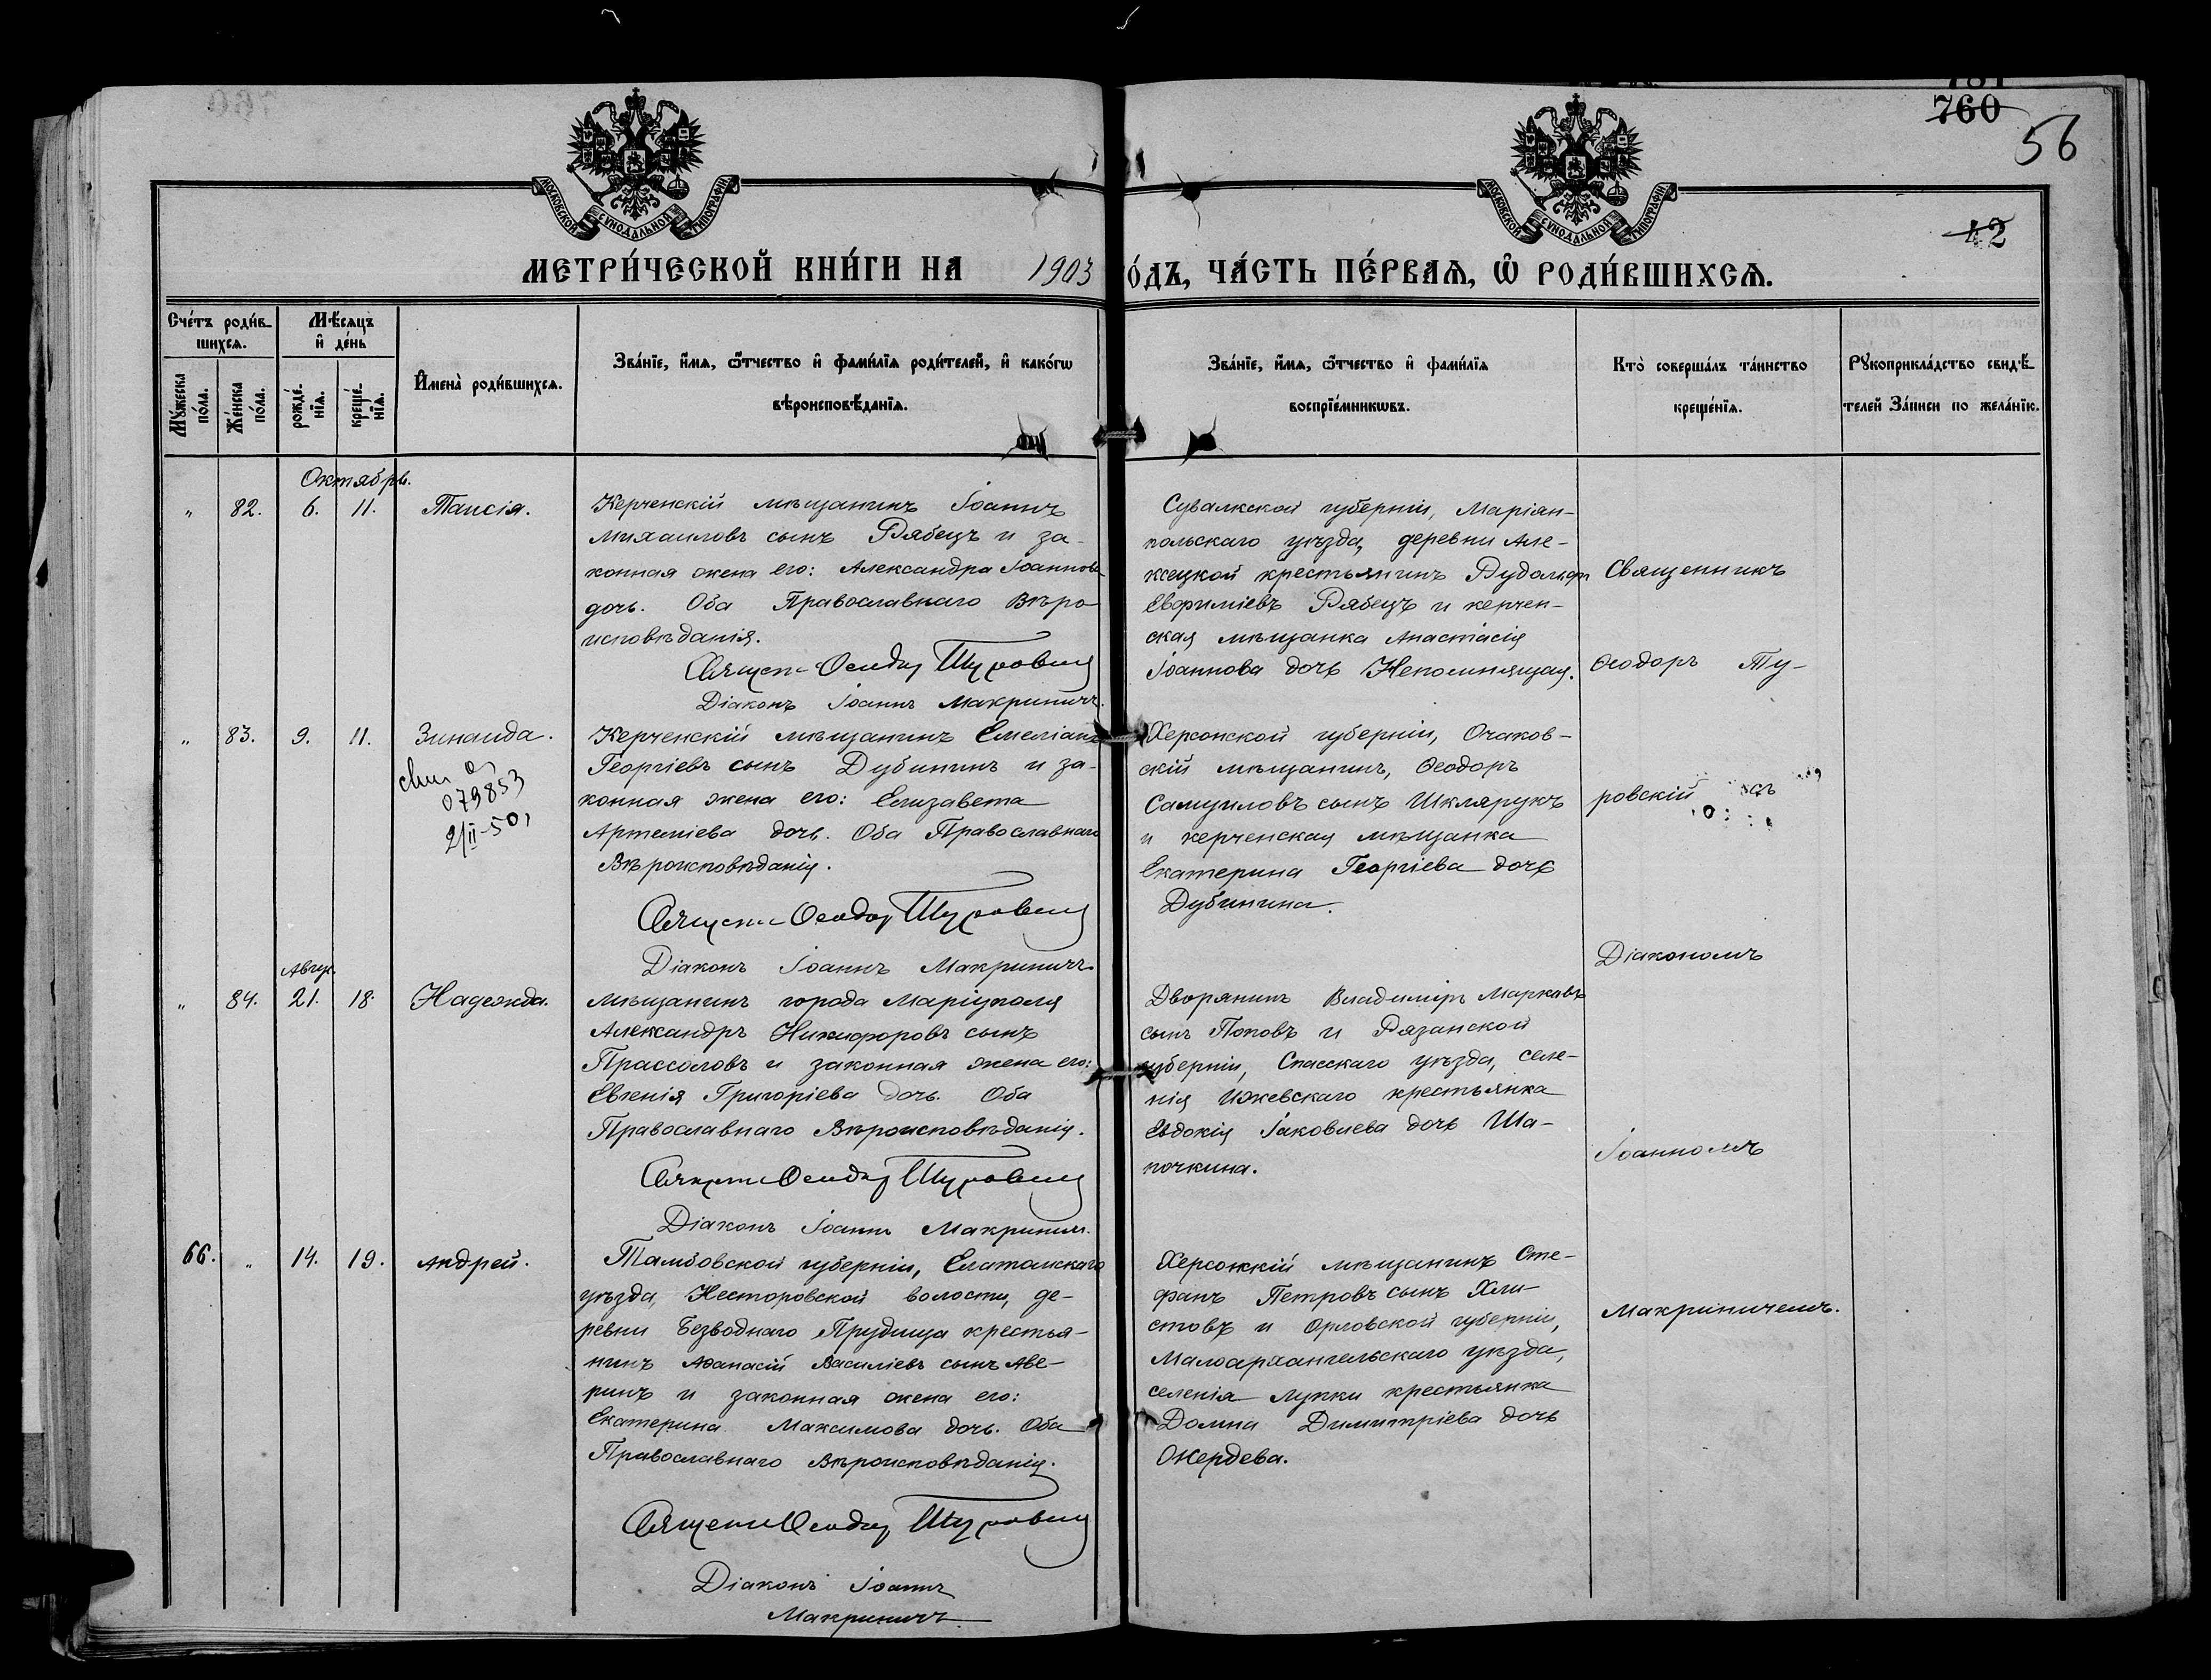 781
760
56
42
МОСКОВСКОЙ СѴНОДАЛЬНОЙ ТИПОГРАФІИ
МОСКОВСКОЙ СѴНОДАЛЬНОЙ ТИПОГРАФІИ
МЕТРИ́ЧЕСКОЙ КНИ́ГИ НА 1903 О́ДЪ, ЧА́СТЬ ПЕ́РВАѦ, Ѡ РОДИ́ВШИХСѦ.
Сче́тъ роди́в-
шихсѧ.
Мꙋ́жеска по́ла.
Же́нска по́ла.
Мѣ́сѧцъ и де́нь
рожде́нїѧ.
креще́нїѧ.
Имена̀ роди́вшихсѧ.
Зва́нїе, и́мѧ, ѻ́тчество и фами́лїѧ роди́телей, и како́гѡ
вѣроисповѣ́данїѧ.
Зва́нїе, и́мѧ, ѻ́тчество и фами́лїѧ
воспрїе́мникѡвъ.
Кто̀ соверша́лъ та́инство
креще́нїѧ.
Рꙋкоприкла́дство свидѣ́-
телей за́писи по жела́нїю.
Октябрь.
" 82. 6. 11. Таисія.
Керченскій мѣщанинъ Іоаннъ
Михаиловъ сынъ Рябецъ и за-
конная жена его: Александра Іоаннова
дочь. Оба Православнаго Вѣро
исповѣданія.
Священ. Ѳеодоръ Туровскій
Діаконъ Іоаннъ Макриничъ.
Сувалкской губерніи, Маріан-
польскаго уѣзда, деревни Але-
жецкой крестьянинъ Рудольфъ
Евфиміевъ Рябецъ и керчен-
ская мѣщанка Анастасія
Іоаннова дочь Непомнящая.
" 83. 9. 11. Зинаида.
079853
2/II-50,
Керченскій мѣщанинъ Емеліанъ
Георгіевъ сынъ Дубининъ и за-
конная жена его: Елизавета
Артеміева дочь. Оба Православнаго
Вѣроисповѣданія.
Священ. Ѳеодоръ Туровскій
Діаконъ Іоаннъ Макриничъ
Херсонской губерніи, Очаков-
скій мѣщанинъ, Ѳеодоръ
Самуиловъ сынъ Шклярукъ
и керченская мѣщанка
Екатерина Георгіева дочь
Дубинина.
Авгус.
" 84. 21. 18. Надежда.
Мѣщанинъ города Маріуполя
Александръ Никифоровъ сынъ
Прассоловъ и законная жена его:
Евгенія Григоріева дочь. Оба
Православнаго Вѣроисповѣданія.
Священ. Ѳеодоръ Туровскій
Діаконъ Іоаннъ Макриничъ.
Дворянинъ Владиміръ Марковъ
сынъ Поповъ и Рязанской
губерніи, Спасскаго уѣзда, селе-
нія Ижевскаго крестьянка
Евдокія Іаковлева дочь Ша-
почкина.
66. " 14. 19. Андрей.
Тамбовской губерніи, Елатомскаго
уѣзда, Несторовской волости, де-
ревни Безводнаго Прудища крестья-
нинъ Аѳанасій Василіевъ сынъ Аве-
ринъ и законная жена его:
Екатерина Максимова дочь. Оба
Православнаго Вѣроисповѣданія.
Священ. Ѳеодоръ Туровскій
Діаконъ Іоаннъ
Макриничъ.
Херсонскій мѣщанинъ Сте-
фанъ Петровъ сынъ Хли-
стовъ и Орловской губерніи,
Малоархангельскаго уѣзда,
селенія Лупки крестьянка
Домна Димитріева дочь
Ожердева.
Священникъ
Ѳеодоръ Ту-
ровскій съ
Діакономъ
Іоанномъ
Макриничемъ.